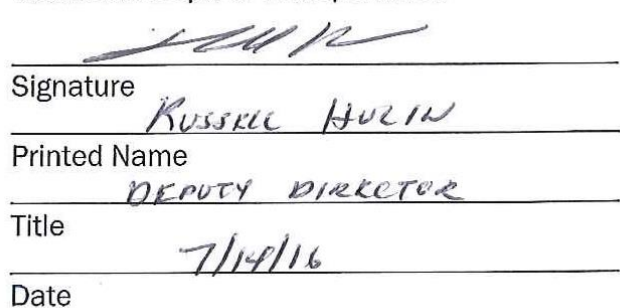 Signature
Russell
Printed Name
DEPUTY DIRECTOR
Title
7/14/16
Date